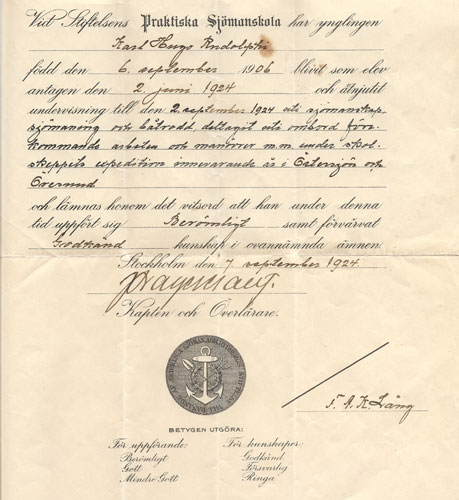 Vid Stiftelsens Praktiska Sjömanskola har ynglingen
Karl Hugo Rudolphi
född den 6. september 1906 blivit som elev
antagen den 2 juni 1924 och åtnjutit
undervisning till den 2 september 1924 uti sjömanskap,
sjömaning och båtrodd deltagit uti ombord före-
kommande arbeten och manövrer m.m. under skol-
skeppets expedition innevarande år i Östersjön och
Öresund
och lämnas honom det vitsord att han under denna
tid uppfört sig Berömligt samt förvärvat
Godkänd kunskap i ovannämnda ämnen.
Stockholm den 7 september 1924.
Kapten och Överlärare.
F. A. K. Läng
BETYGEN UTGÖRA:
För uppförande: För kunskaper:
Berömligt Godkänd
Gott Försvarlig
Mindre Gott Ringa